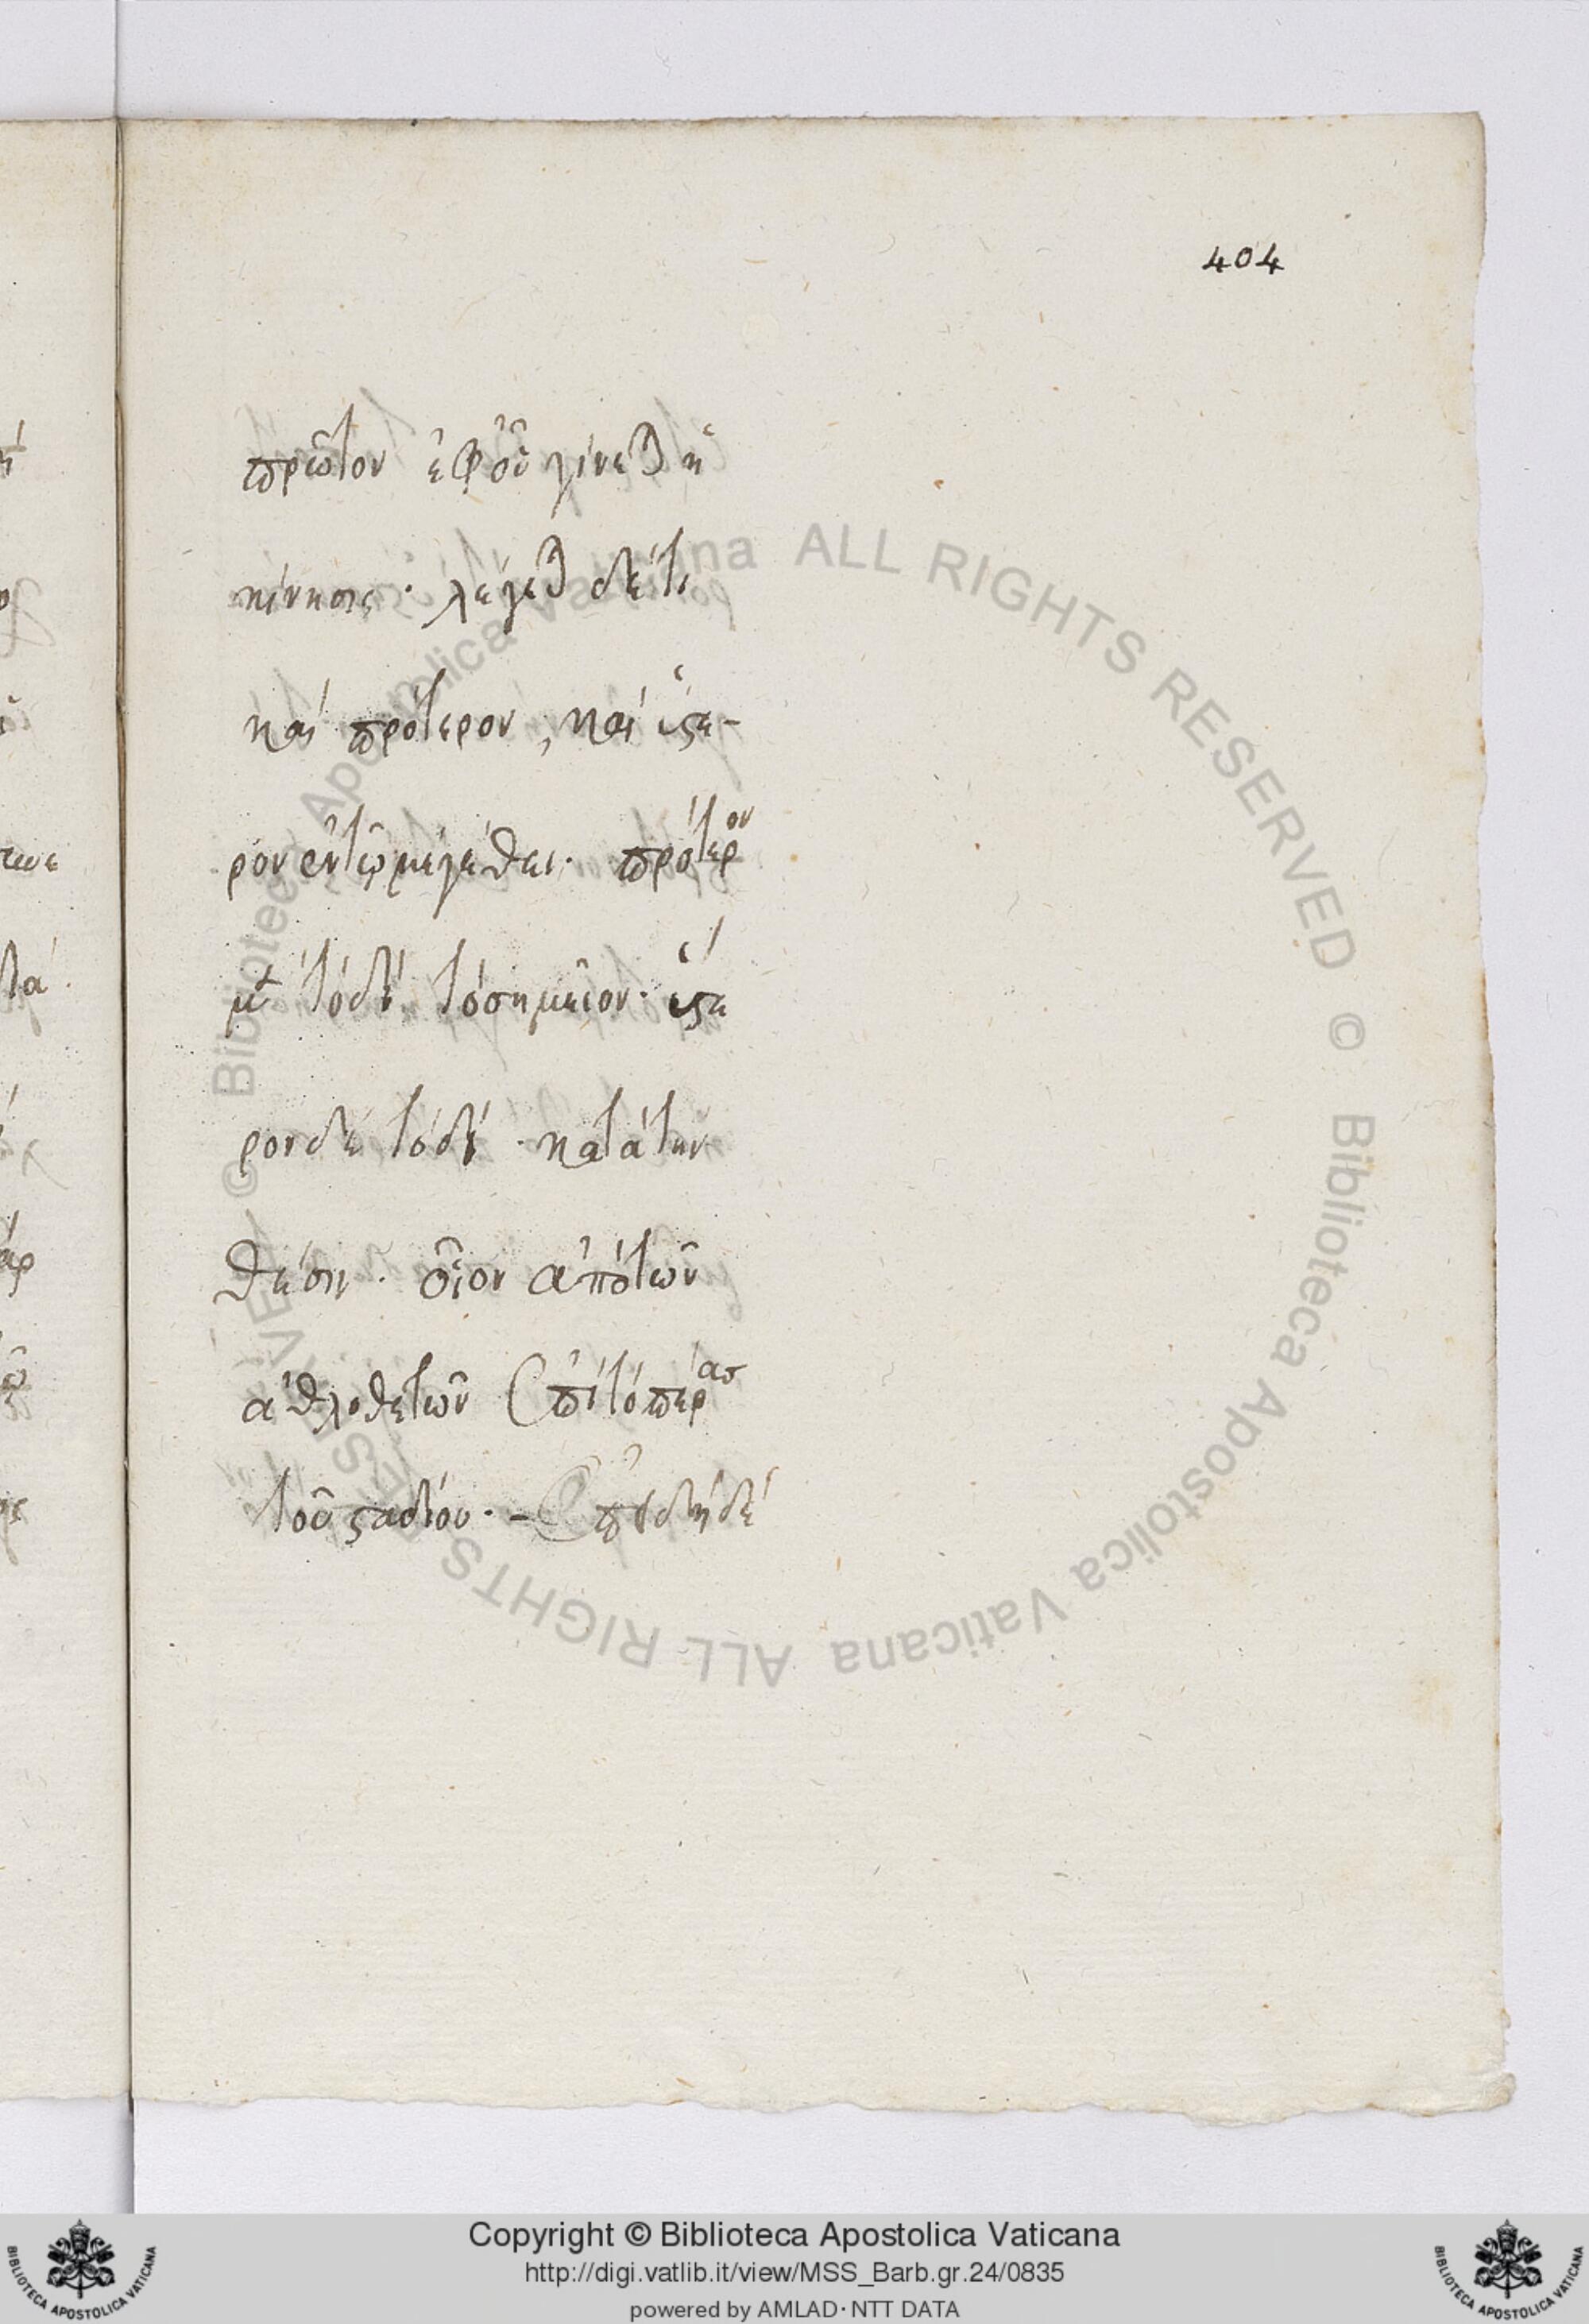 404
πρῶτον ἐφ' οὗ γίνεται ἡ
κίνησις · λέγεται δέ τι
καὶ πρότερον, καὶ ὕστε-
ρον ἐν τῷ μεγέθει · πρότερον
μὲν τόδε τὸ σημεῖον · ὕστε
ρον δὲ τόδε · κατὰ τὴν
θέσιν · οἷον ἀπὸ τῶν
ἀθλοθετῶν ἐπὶ τὸ πέρας
τοῦ σταδίου · – Ἐπειδὴ δὲ
Copyright © Biblioteca Apostolica Vaticana
http://digi.vatlib.it/view/MSS_Barb.gr.24/0835
powered by AMLAD · NTT DATA
BIBLIOTECA APOSTOLICA VATICANA
BIBLIOTECA APOSTOLICA VATICANA
© Biblioteca Apostolica Vaticana ALL RIGHTS RESERVED
© Biblioteca Apostolica Vaticana ALL RIGHTS RESERVED